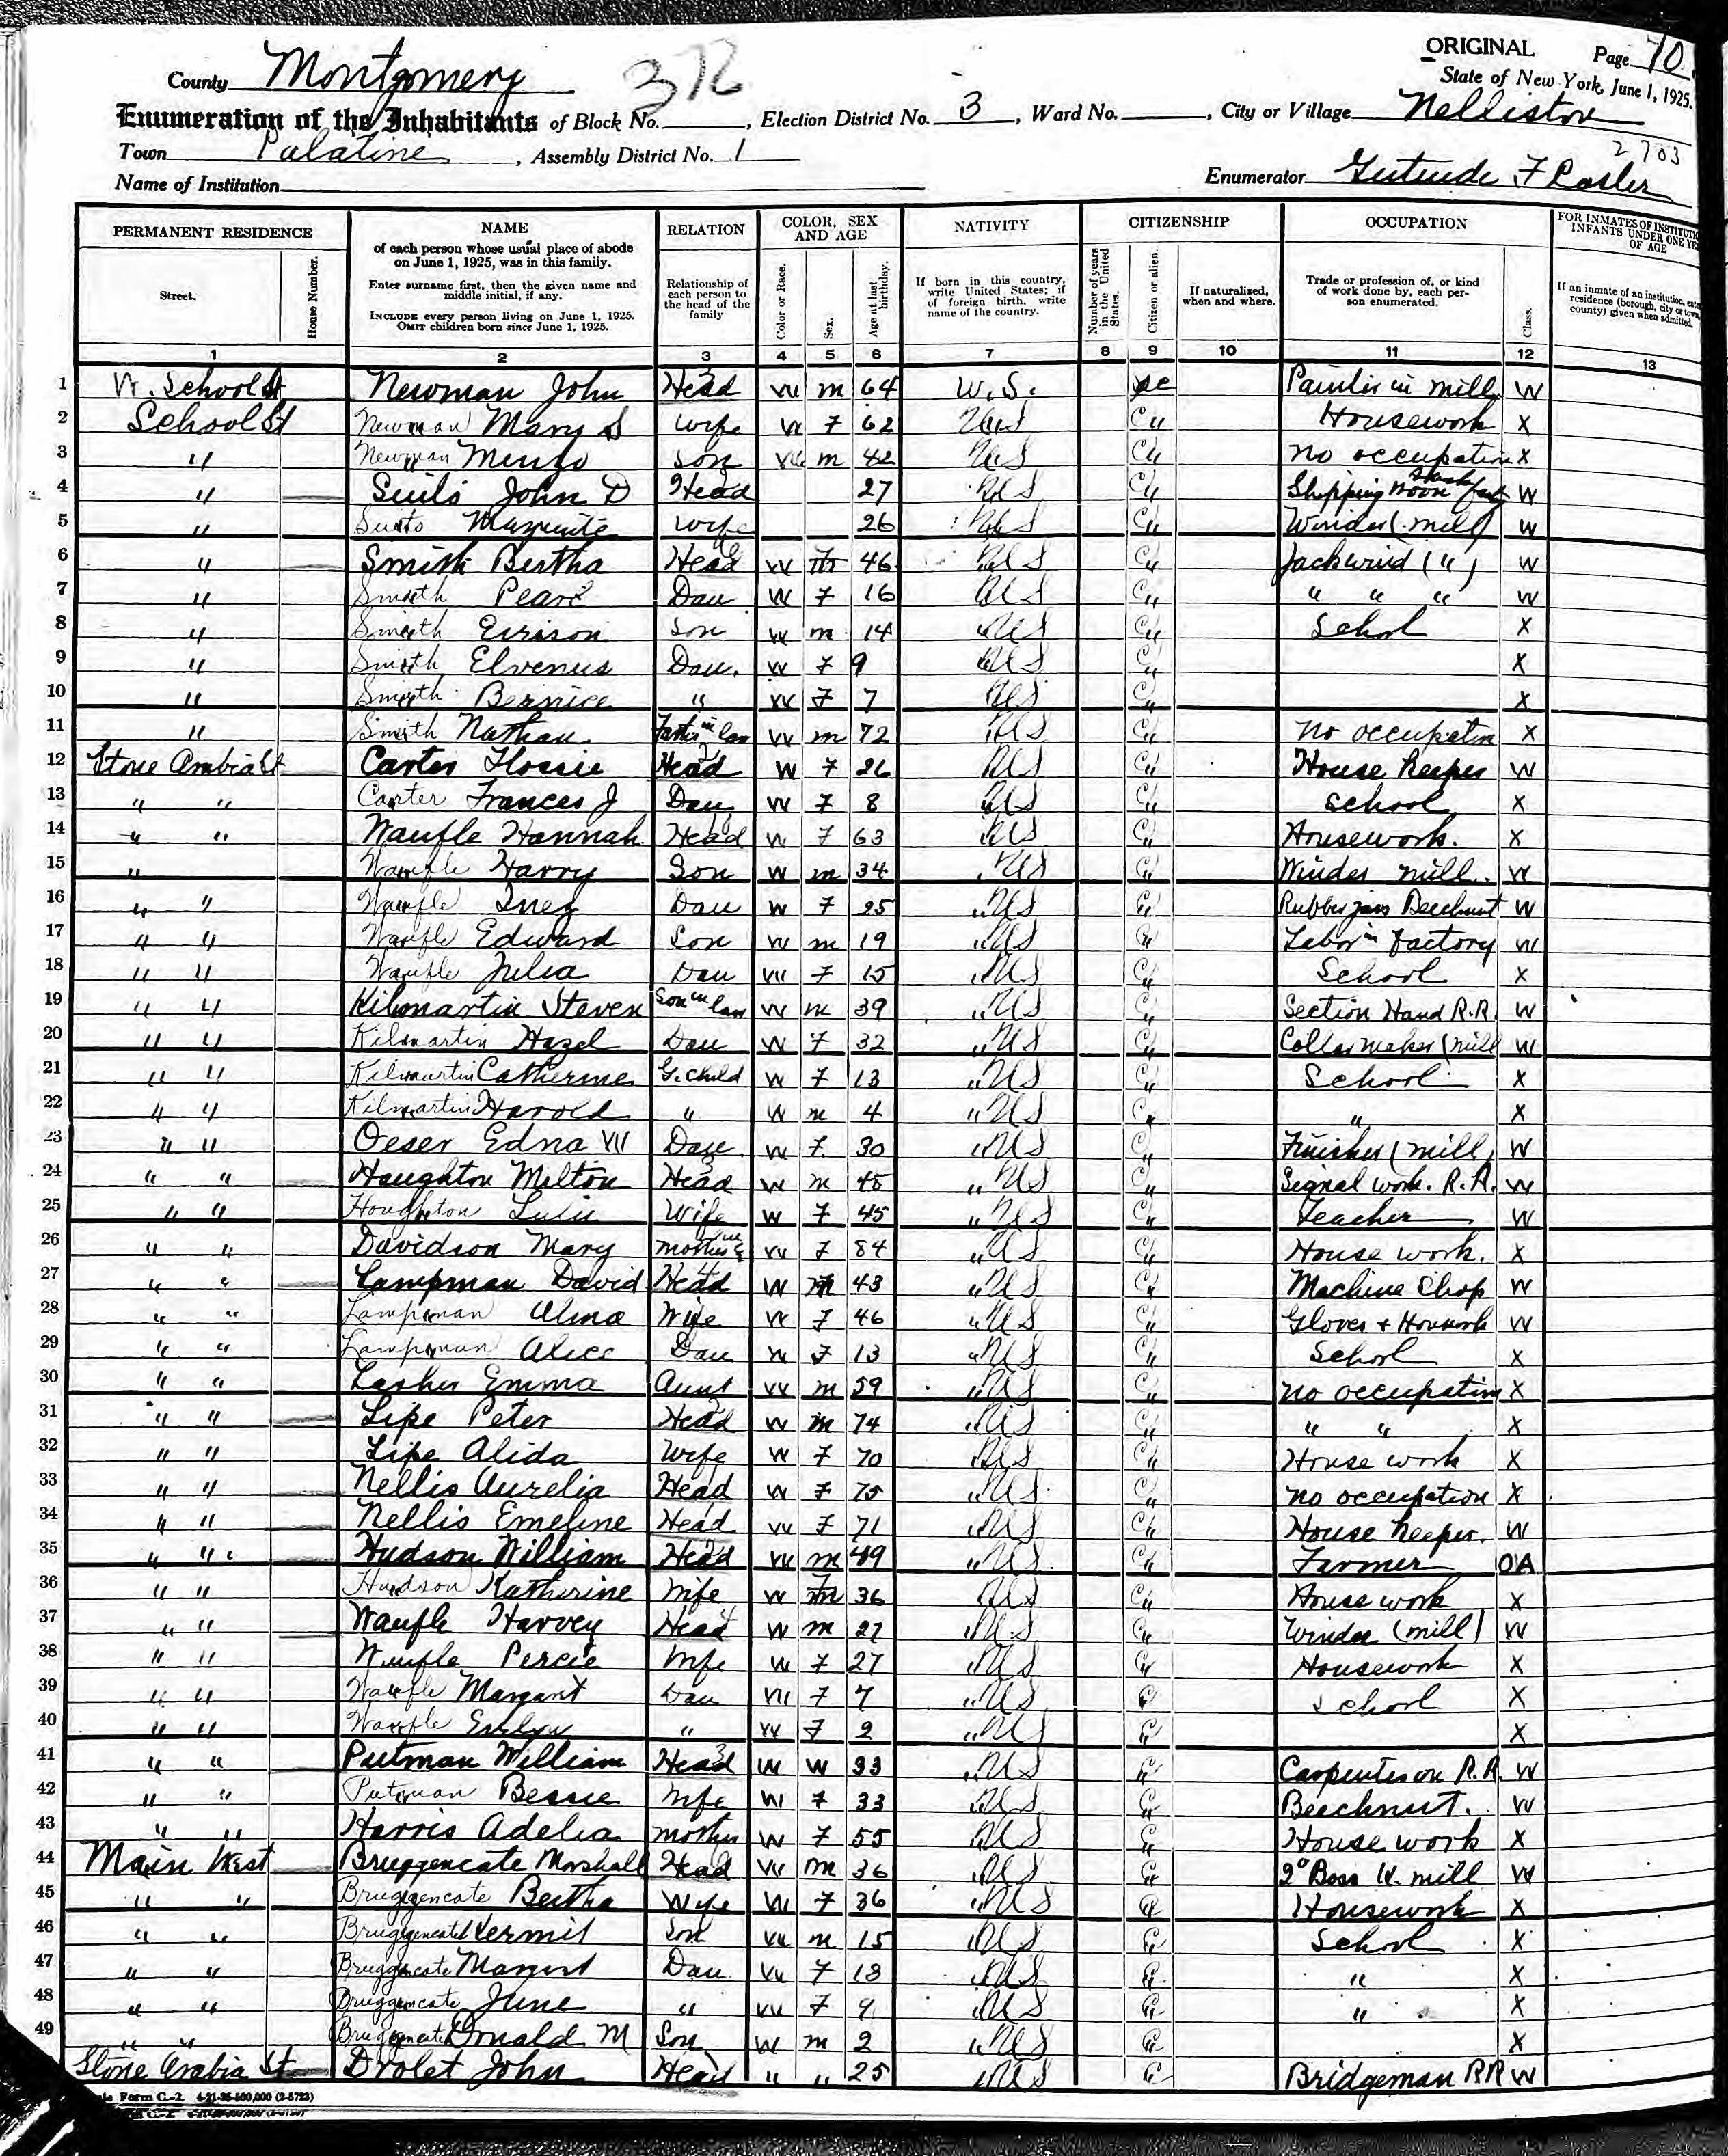 ORIGINAL Page 70
State of New York, June 1, 1925.
County Montgomery 372
Enumeration of the Inhabitants of Block No. , Election District No. 3 , Ward No. , City or Village Nelliston
Town Palatine , Assembly District No. 1
2703
Name of Institution Enumerator Gertrude F
PERMANENT RESIDENCE NAME RELATION COLOR, SEX AND AGE NATIVITY CITIZENSHIP OCCUPATION FOR INMATES OF INSTITUTI INFANTS UNDER ONE YE OF AGE
Street. House Number. of each person whose usual place of abode on June 1, 1925, was in this family.
Enter surname first, then the given name and middle initial, if any.
INCLUDE every person living on June 1, 1925. OMIT children born since June 1, 1925.
Relationship of each person to the head of the family
Color or Race. Sex. Age at last birthday.
If born in this country, write United States; if of foreign birth, write name of the country.
Number of years in the United States. Citizen or alien. If naturalized, when and where.
Trade or profession of, or kind of work done by, each person enumerated. Class.
If an inmate of an institution, ente residence (borough, city or town, county) given when admitted.
1 2 3 4 5 6 7 8 9 10 11 12 13
1 W. School St Newman John Head W m 64 U.S. Painter in mill W
2 School St Newman Mary S Wife W F 62 US Cu Housework X
3 " Newman Son W m 42 US Cu No occupation X
4 " Suits John D Head 27 US Cu Shipping W
5 " Suits Wife 26 US Cu Winder (mill) W
6 " Smith Bertha Head W 46 US Cu Jackwind (") W
7 " Smith Pearl Dau W F 16 US Cu " " " W
8 " Smith Son W m 14 US Cu School X
9 " Smith Elvenus Dau. W F 9 US Cu X
10 " Smith Bernice " W F 7 US Cu X
11 " Smith Nathan Father in law W m 72 US Cu No occupation X
12 Stone Arabia St Carter Flossie Head W F 26 US Cu House keeper W
13 " " Carter Frances J Dau W F 8 US Cu School X
14 " " Waufle Hannah Head W F 63 US Cu Housework. X
15 " Waufle Harry Son W m 34 US Cu Winder mill. W
16 " " Waufle Inez Dau W F 25 US Cu Rubber jars Beechnut W
17 " " Waufle Edward Son W m 19 US Cu Labor in factory W
18 " " Waufle Julia Dau W F 15 US Cu School X
19 " " Kilmartin Steven Son in law W m 39 US Cu Section Hand R.R. W
20 " " Kilmartin Hazel Dau W F 32 US Cu Collar maker (mill W
21 " " Kilmartin Catherine G. child W F 13 US Cu School X
22 " " Kilmartin Harold " W m 4 US Cu " X
23 " " Oeser Edna W Dau W F 30 US Cu Finisher (mill) W
24 " " Houghton Milton Head W m 45 US Cu Signal work. R.R. W
25 " " Houghton Lulu Wife W F 45 US Cu Teacher W
26 " " Davidson Mary Mother in L W F 84 US Cu House work. X
27 " " Lampman David Head W m 43 US Cu Machine Shop W
28 " " Lampman Alma Wife W F 46 US Cu Gloves + Housework W
29 " " Lampman Alice Dau W F 13 US Cu School X
30 " " Lasher Emma Aunt W m 59 US Cu No occupation X
31 " " Lipe Peter Head W m 74 US Cu " " X
32 " " Lipe Alida Wife W F 70 US Cu House work X
33 " " Nellis Aurelia Head W F 75 US Cu No occupation X
34 " " Nellis Emeline Head W F 71 US Cu House keeper. W
35 " " Hudson William Head W m 49 US Cu Farmer OA
36 " " Hudson Katherine Wife W 36 US Cu House work X
37 " " Waufle Harvey Head W m 27 US Cu Winder (mill) W
38 " " Waufle Percie Wife W F 27 US Cu Housework X
39 " " Waufle Margaret Dau W F 7 US C School X
40 " " Waufle Evelyn " W F 2 US C X
41 " " Putman William Head W W 33 US C Carpenter on R.R. W
42 " " Putman Bessie Wife W F 33 US Cu Beechnut. W
43 " " Harris Adelia Mother W F 55 US Cu House work X
44 Main West Bruggencate Marshall Head W m 36 US Cu 2° Boss K. mill W
45 " " Bruggencate Bertha Wife W F 36 US Cu Housework X
46 " " Bruggencate Kermit Son W m 15 US Cu School X
47 " " Bruggencate Margaret Dau. W F 13 US Cu " X
48 " " Bruggencate June " W F 9 US Cu " X
49 " " Bruggencate Donald M Son W m 2 US Cu X
Stone Arabia St Drolet John Head " " 25 US C Bridgeman RR W
Form C.-2. 4-21-25-500,000 (2-5723)